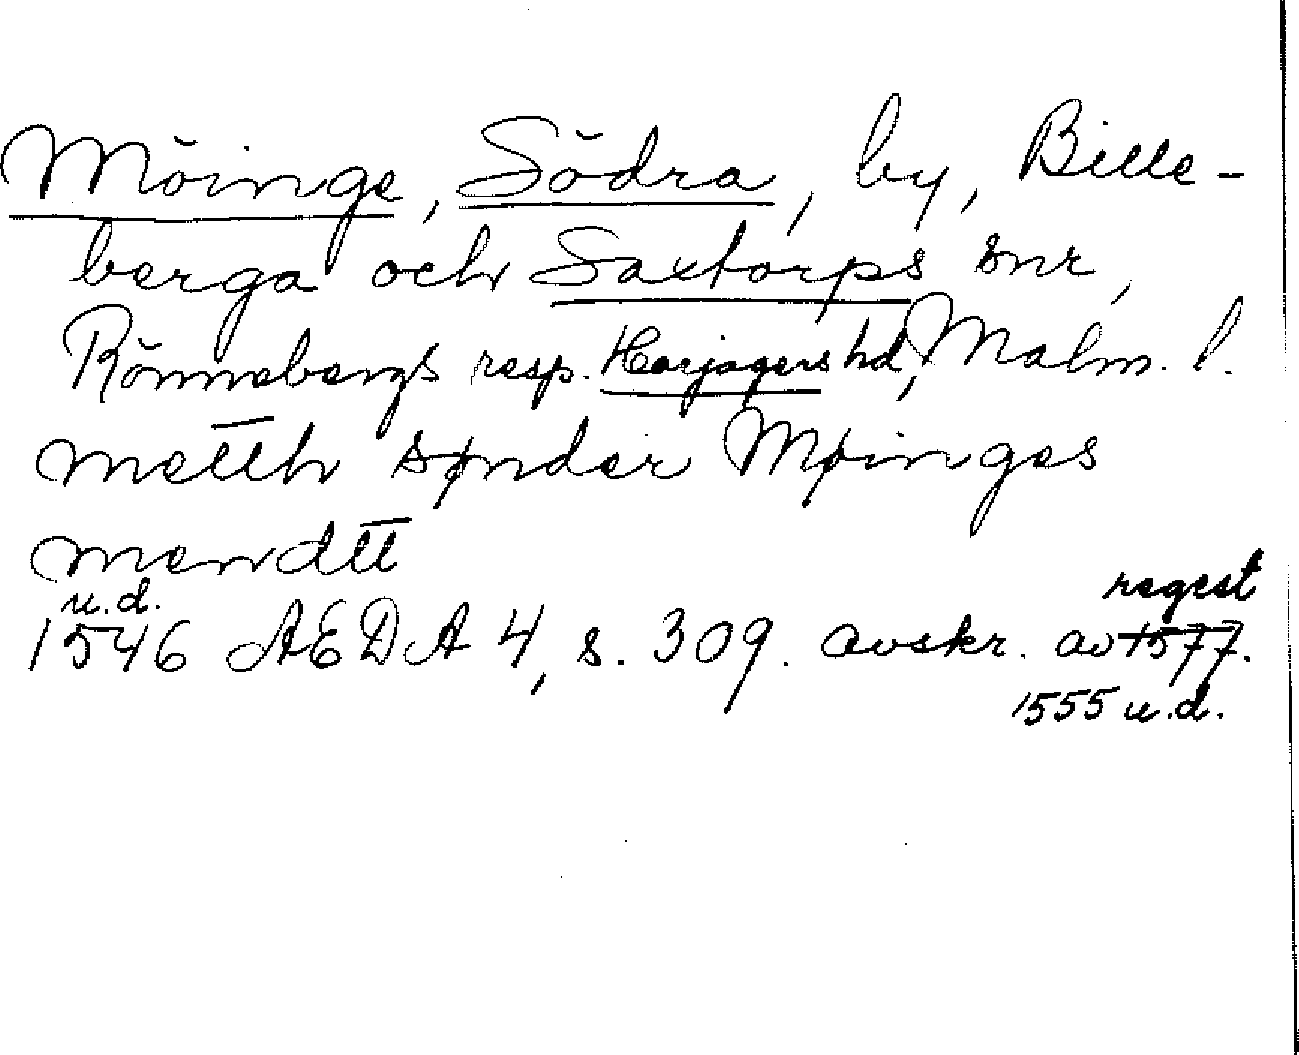 Möinge, Södra, by, Bille-
berga och Saxtorps snr,
Rönnebergs resp. Harjagers hd, Malm. l.
mettħ sønder Møinges
mendtt
u.d.
regest
1546 AEDA 4, s. 309. avskr. av 1577.
1555 u.d.